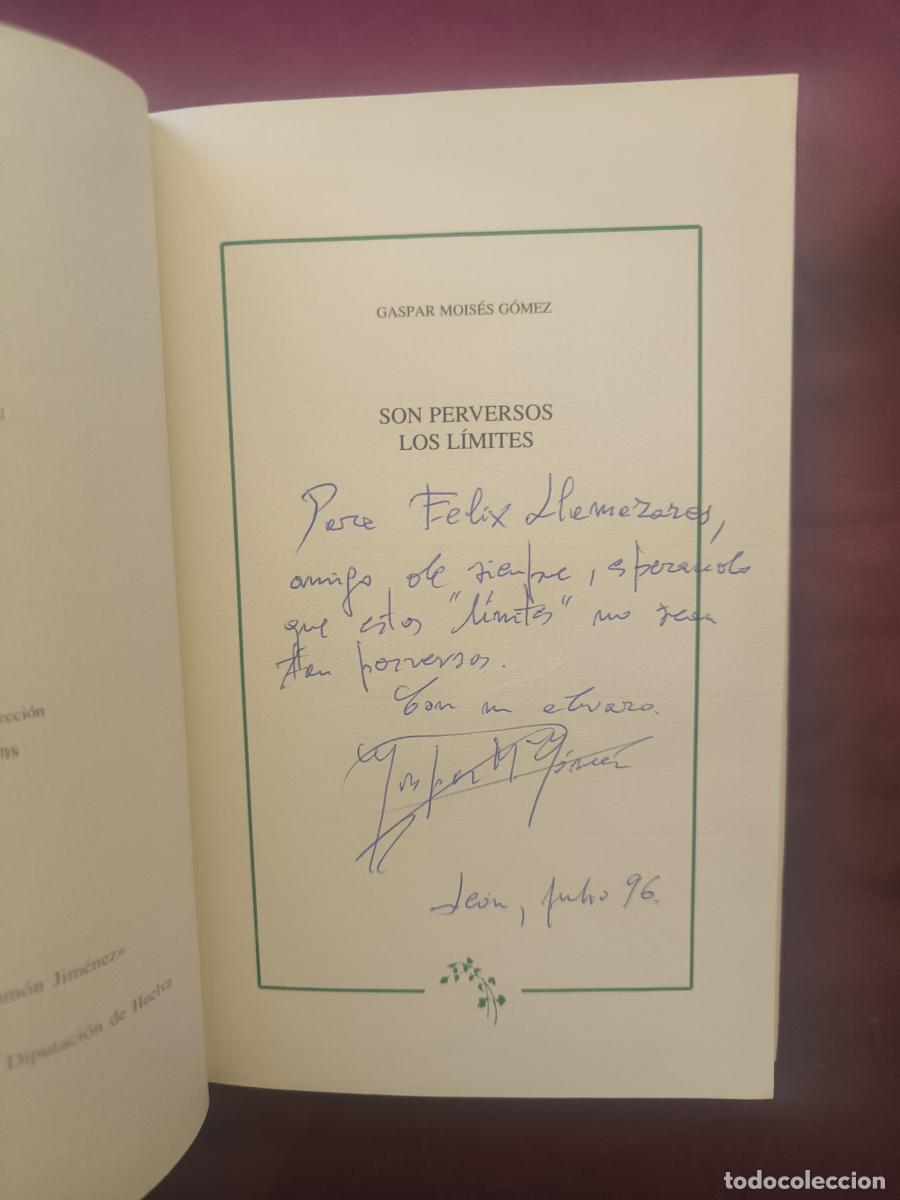 GASPAR MOISÉS GÓMEZ
SON PERVERSOS
LOS LÍMITES
Para Felix Llamazares,
amigo de siempre, esperando
que estos "límites" no sean
tan perversos.
Con un abrazo.
Gaspar M. Gómez
León, julio 96.
ección
ns
món Jiménez»
Diputación de Huelva
todocoleccion